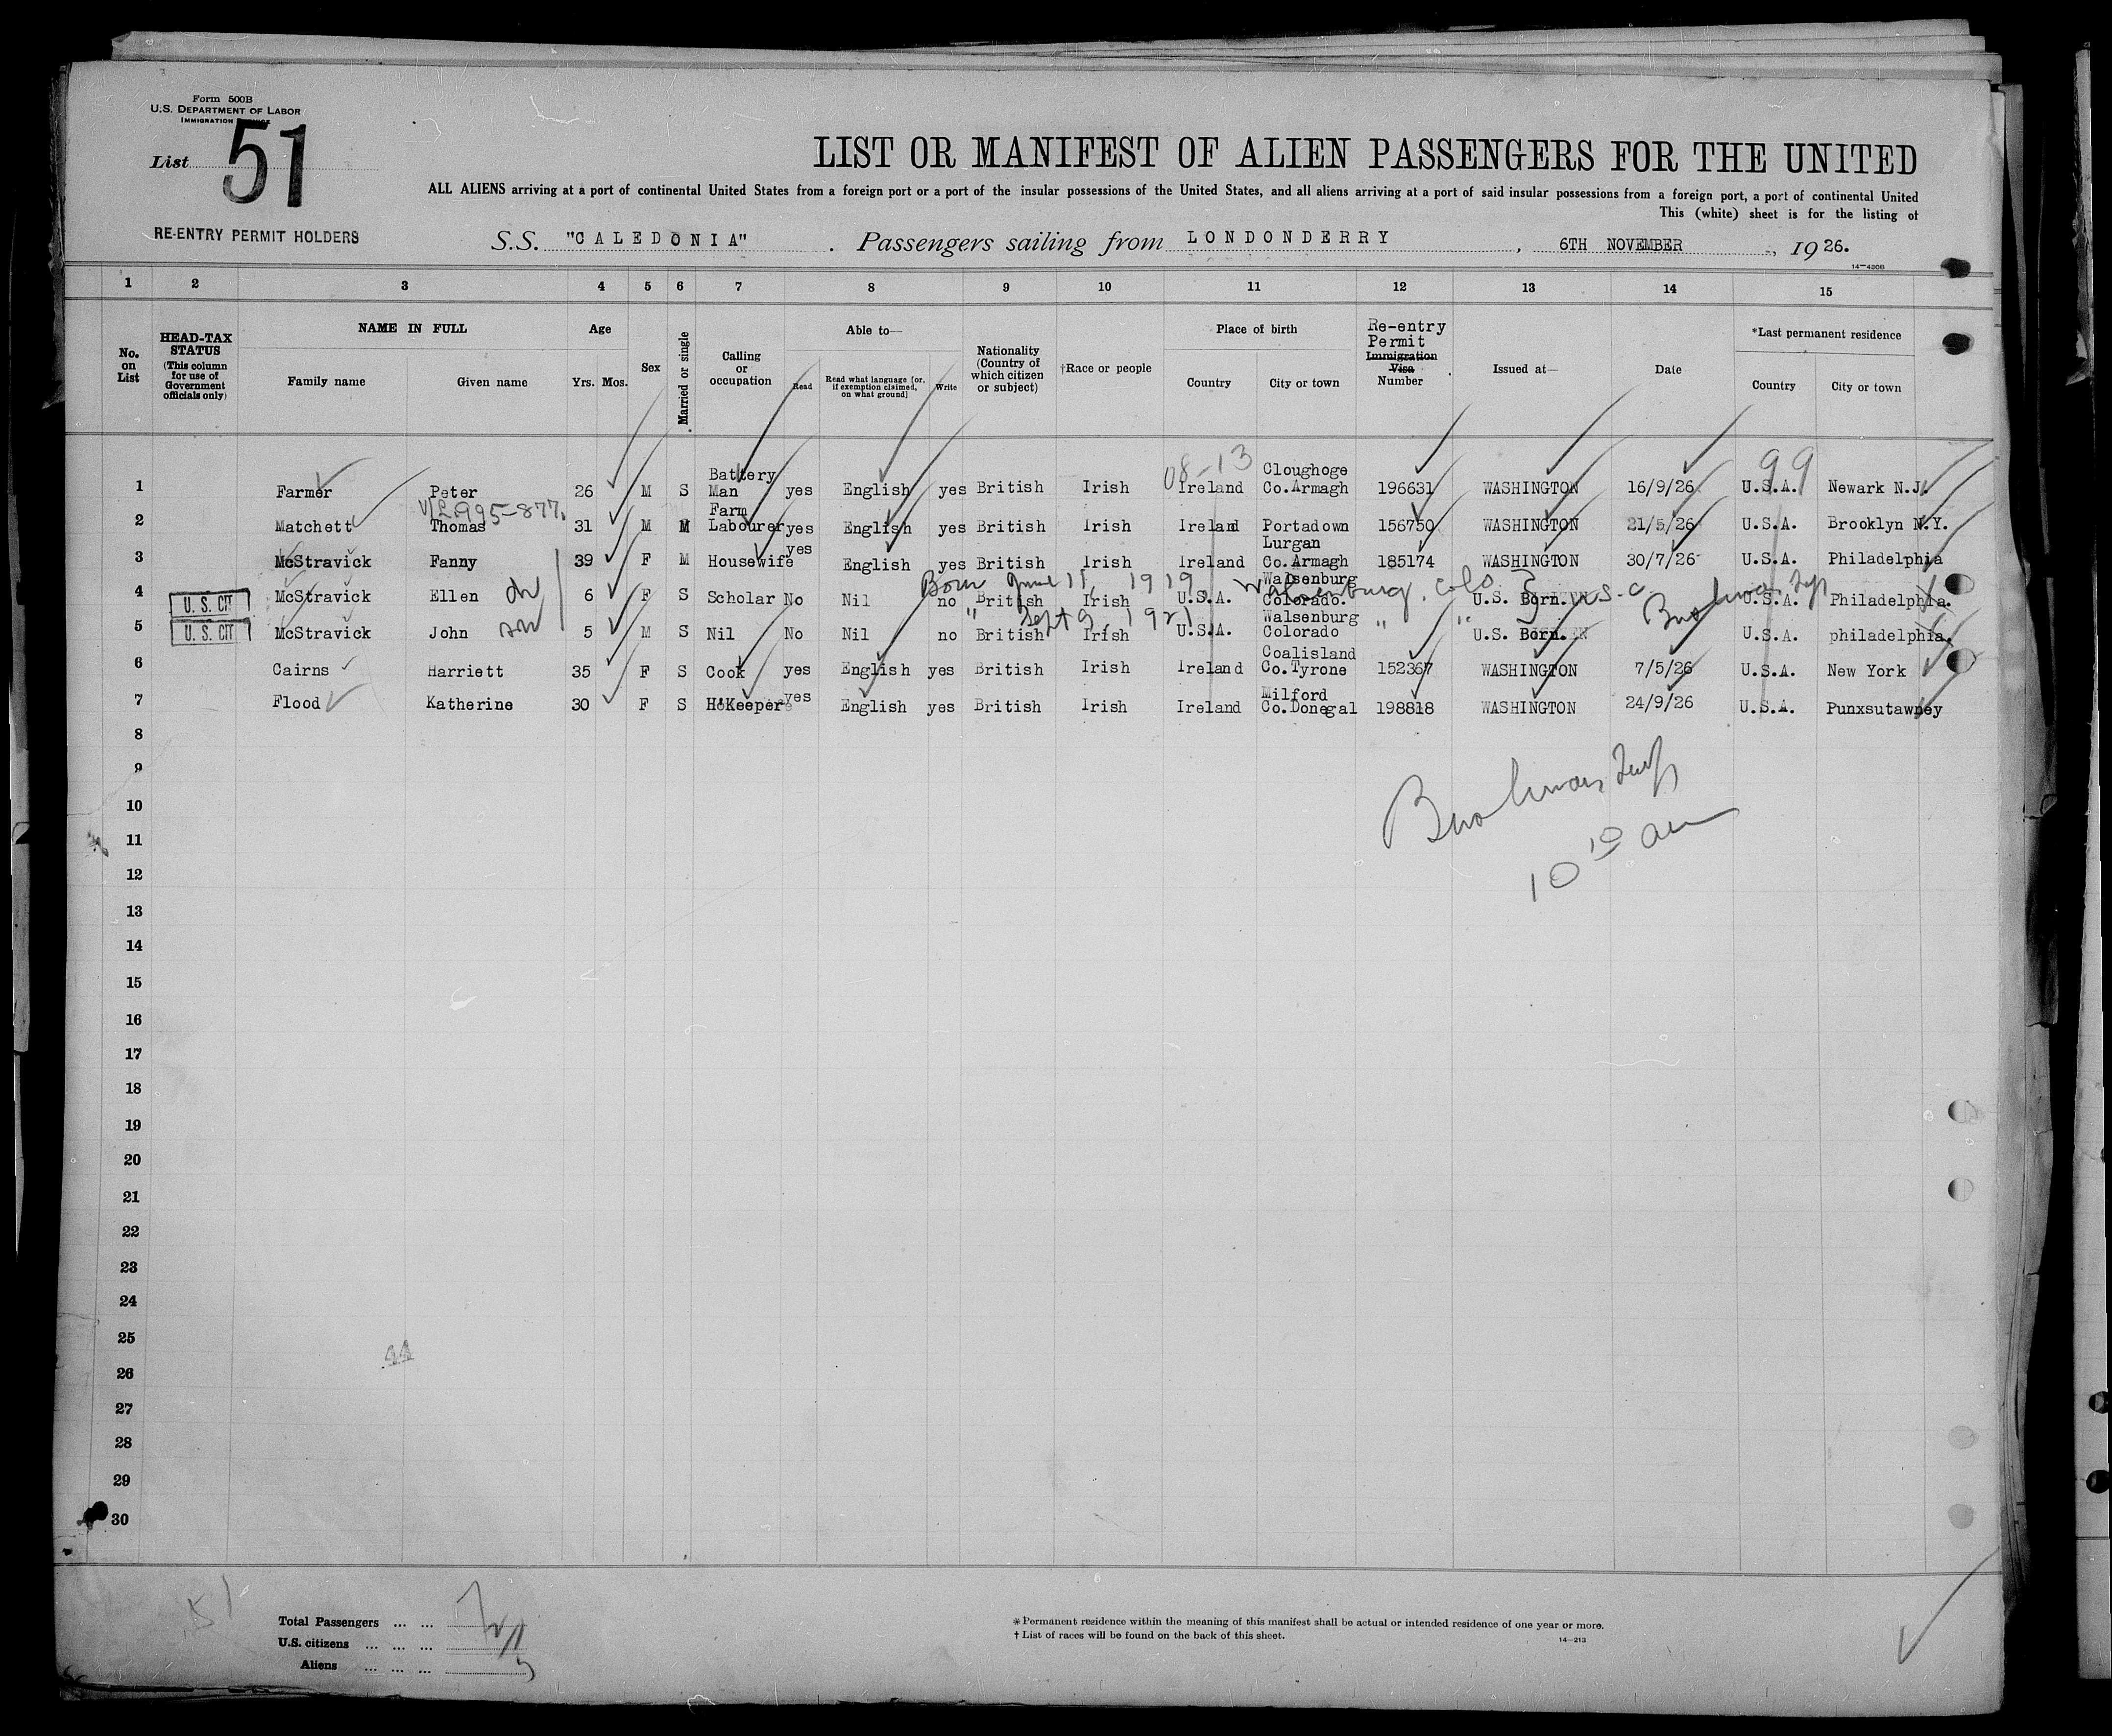 Form 500B
U.S. DEPARTMENT OF LABOR
IMMIGRATION
List 51
LIST OR MANIFEST OF ALIEN PASSENGERS FOR THE UNITED
ALL ALIENS arriving at a port of continental United States from a foreign port or a port of the insular possessions of the United States, and all aliens arriving at a port of said insular possessions from a foreign port, a port of continental United
This (white) sheet is for the listing of
RE-ENTRY PERMIT HOLDERS
S.S. "CALEDONIA" . Passengers sailing from LONDONDERRY , 6TH NOVEMBER , 19 26.
14-420B
1 2 3 4 5 6 7 8 9 10 11 12 13 14 15
No. on List
HEAD-TAX STATUS (This column for use of Government officials only)
NAME IN FULL
Family name Given name
Age
Yrs. Mos.
Sex
Married or single
Calling or occupation
Able to—
Read Read what language [or, if exemption claimed, on what ground] Write
Nationality (Country of which citizen or subject)
†Race or people
Place of birth
Country City or town
Re-entry Permit
Immigration Visa Number
Issued at—
Date
*Last permanent residence
Country City or town
08-13 99
1 Farmer Peter 26 M S Battery Man yes English yes British Irish Ireland Cloughoge Co.Armagh 196631 WASHINGTON 16/9/26 U.S.A. Newark N.J.
995-877
2 Matchett Thomas 31 M M Farm Labourer yes English yes British Irish Ireland Portadown 156750 WASHINGTON 21/5/26 U.S.A. Brooklyn N.Y.
3 McStravick Fanny 39 F M Housewife yes English yes British Irish Ireland Lurgan Co.Armagh 185174 WASHINGTON 30/7/26 U.S.A. Philadelphia
Born June 11, 1919 Walsenburg, Colo
U. S. CIT 4 McStravick Ellen 6 F S Scholar No Nil no British Irish U.S.A. Walsenburg Colorado. U.S. Born. U.S.A. Philadelphia.
" Sept 9, 1921 " "
U. S. CIT 5 McStravick John son 5 M S Nil No Nil no British Irish U.S.A. Walsenburg Colorado U.S. Born. U.S.A. philadelphia.
6 Cairns Harriett 35 F S Cook yes English yes British Irish Ireland Coalisland Co.Tyrone 152367 WASHINGTON 7/5/26 U.S.A. New York
7 Flood Katherine 30 F S H'Keeper yes English yes British Irish Ireland Milford Co.Donegal 198818 WASHINGTON 24/9/26 U.S.A. Punxsutawney
8
9
10
11
12
13
14
15
16
17
18
19
20
21
22
23
24
25
26
27
28
29
30
10 10 am
44
51
Total Passengers ... ...
U.S. citizens ... ... ...
Aliens ... ... ...
* Permanent residence within the meaning of this manifest shall be actual or intended residence of one year or more.
† List of races will be found on the back of this sheet.
14-213